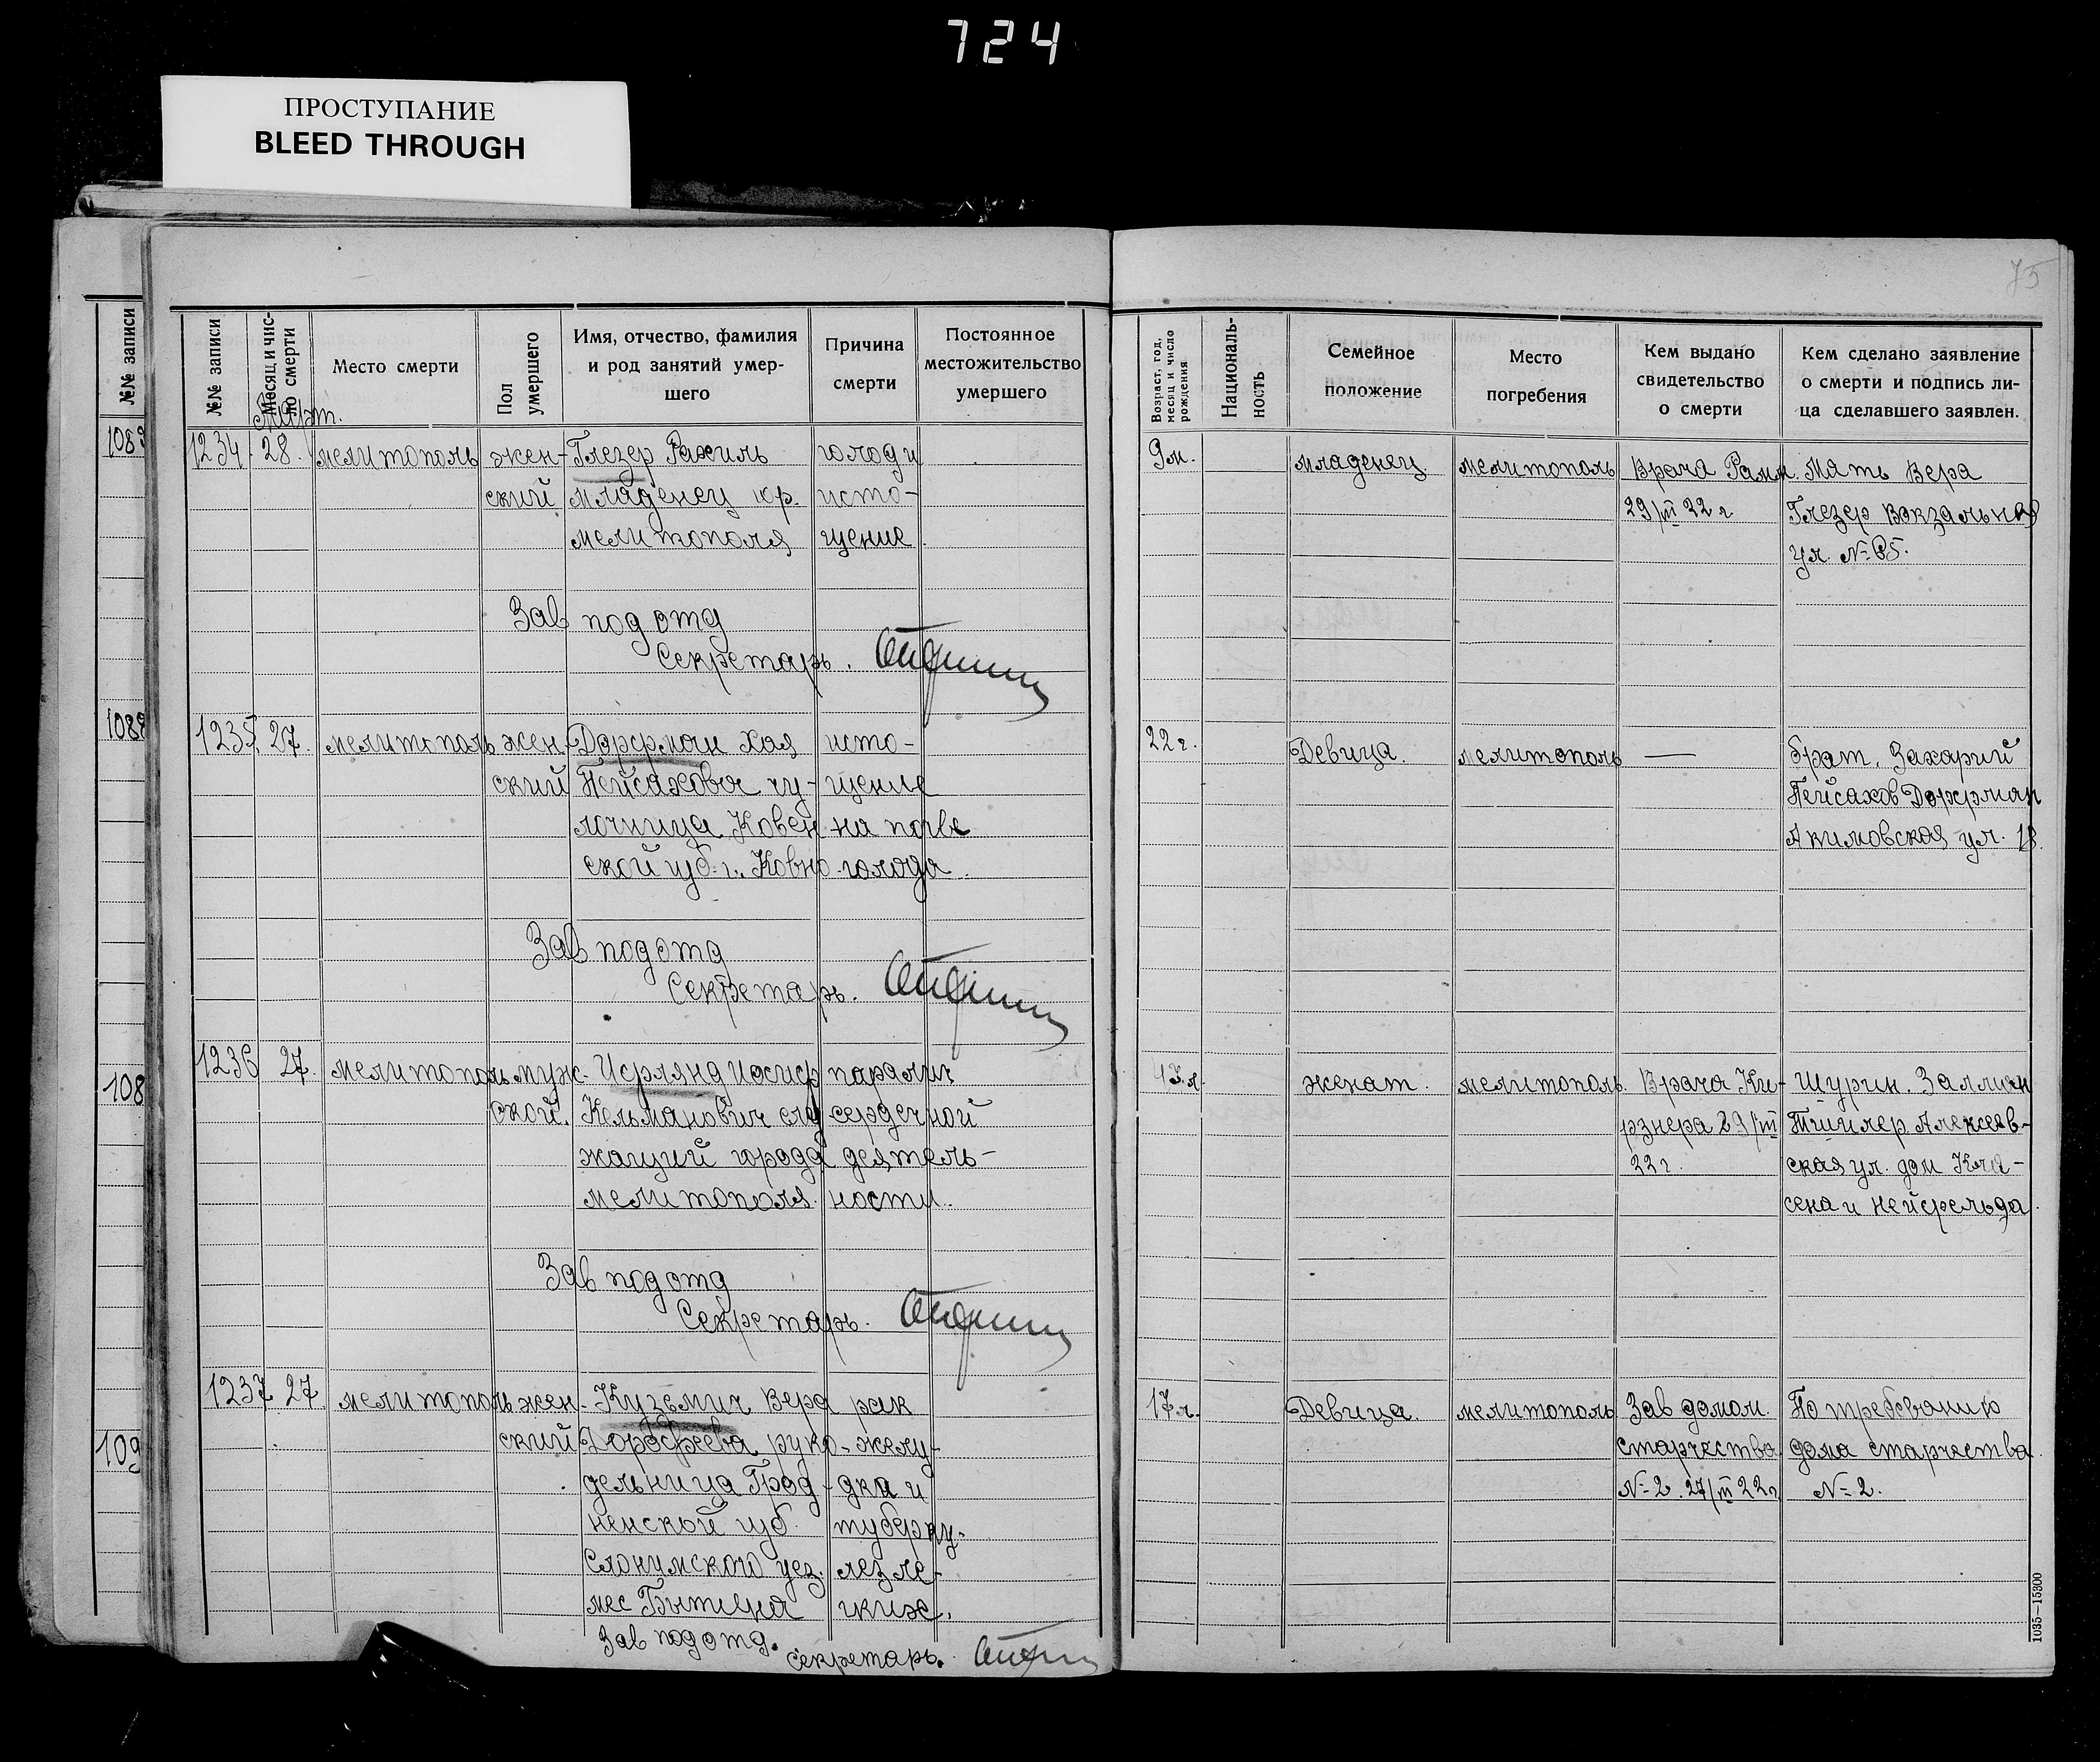 724
ПРОСТУПАНИЕ
BLEED THROUGH
75
№№ записи
№№ записи
Месяц и чис-
ло смерти
Место смерти
Пол
умершего
Имя, отчество, фамилия
и род занятий умер-
шего
Причина
смерти
Постоянное
местожительство
умершего
Возраст, год,
месяц и число
рождения
Националь-
ность
Семейное
положение
Место
погребения
Кем выдано
свидетельство
о смерти
Кем сделано заявление
о смерти и подпись ли-
ца сделавшего заявлен.
Март.
1088
108
109
1234 28. мелитополь жен- Глезер Рахиль голод и
ский младенец гр. исто-
мелитополя щение
9 м. младенец мелитополь Врача Мать Вера
29/III 22 г Глезер Вокзальная
ул. № 85.
Зав подотд
Секретарь.
1235 27. мелитополь жен- Дорфман Хая исто-
ский Пейсахова чу- щение
лочница Ковен- на почве
ской губ. г. Ковно голода
22 г. Девица. мелитополь — брат. Захарий
Пейсахов Дорфман
Акимовская ул. 18.
Зав подотд
Секретарь.
1236 27. мелитополь муж- Исрлянд Иосиф паралич
ской. Кельманович слу- сердечной
жащий города деятель-
мелитополя. ности.
43 л. женат. мелитополь. Врача Ки- Шурин. Залман
рзнера 29/III Алексеев-
22 г. ская ул. дом Кла-
сена и Нейфельда.
Зав подотд
Секретарь.
1237 27 мелитополь жен- Куземич Вера рак
ский Дорофеева руко- желу-
дельница Грод- дка и
ненской губ. туберку-
Слонимского уез. лез ле-
мес Бытеня гких.
17 л. Девица. мелитополь Зав домом По требованию
старчества дома старчества
№ 2. 27/III 22 г № 2.
Зав подотд.
секретарь.
1035—15300